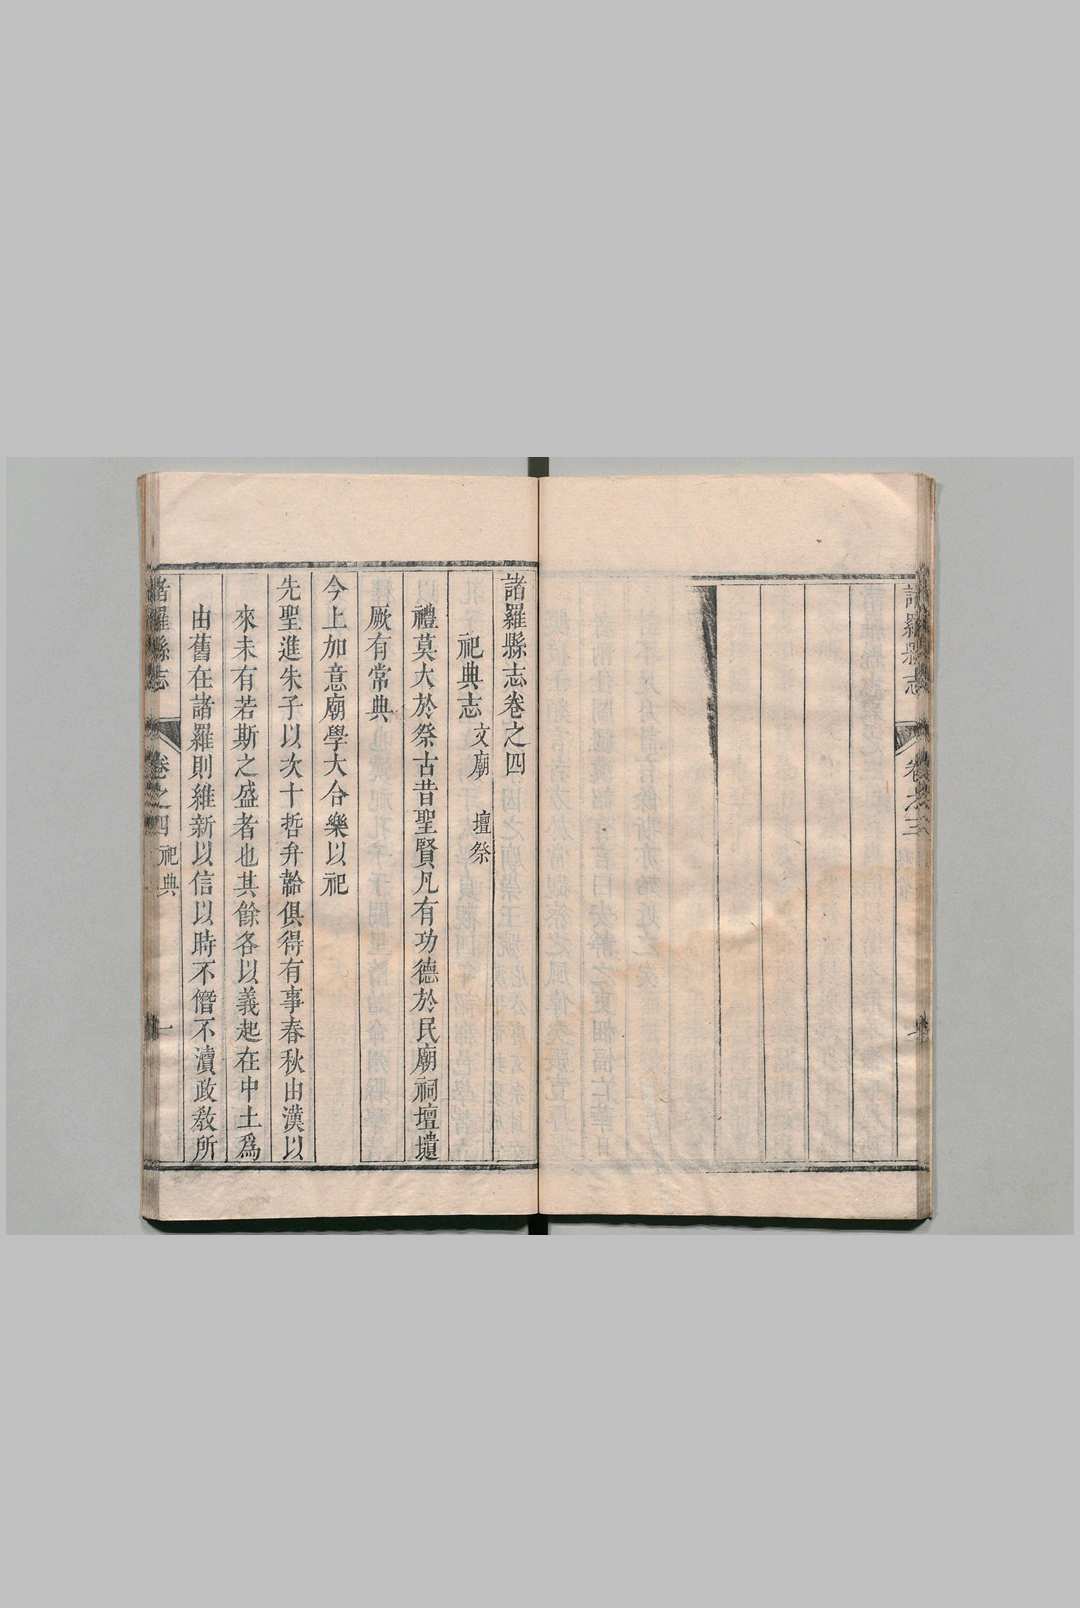 諸羅縣志
卷之三
諸羅縣志卷之四
祀典志 文廟 壇祭
禮莫大於祭古昔聖賢凡有功德於民廟祠壇壝
厥有常典
今上加意廟學大合樂以祀
先聖進朱子以次十哲弁韐俱得有事春秋由漢以
來未有若斯之盛者也其餘各以義起在中土爲
由舊在諸羅則維新以信以時不僭不瀆政教所
諸羅縣志 卷之四 祀典 一